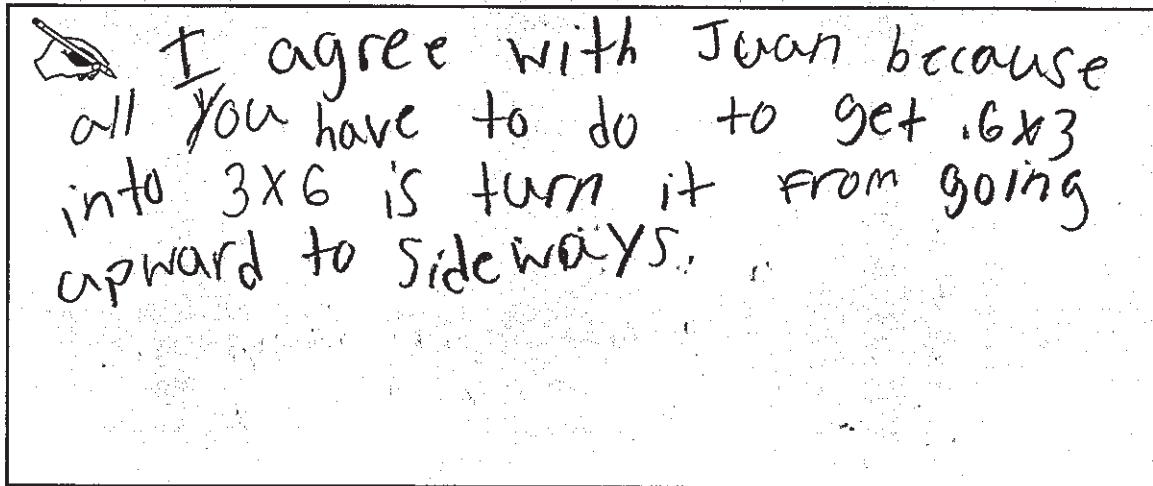 I agree with Juan because
all you have to do to get .6x3
into 3x6 is turn it from going
upward to sideways.